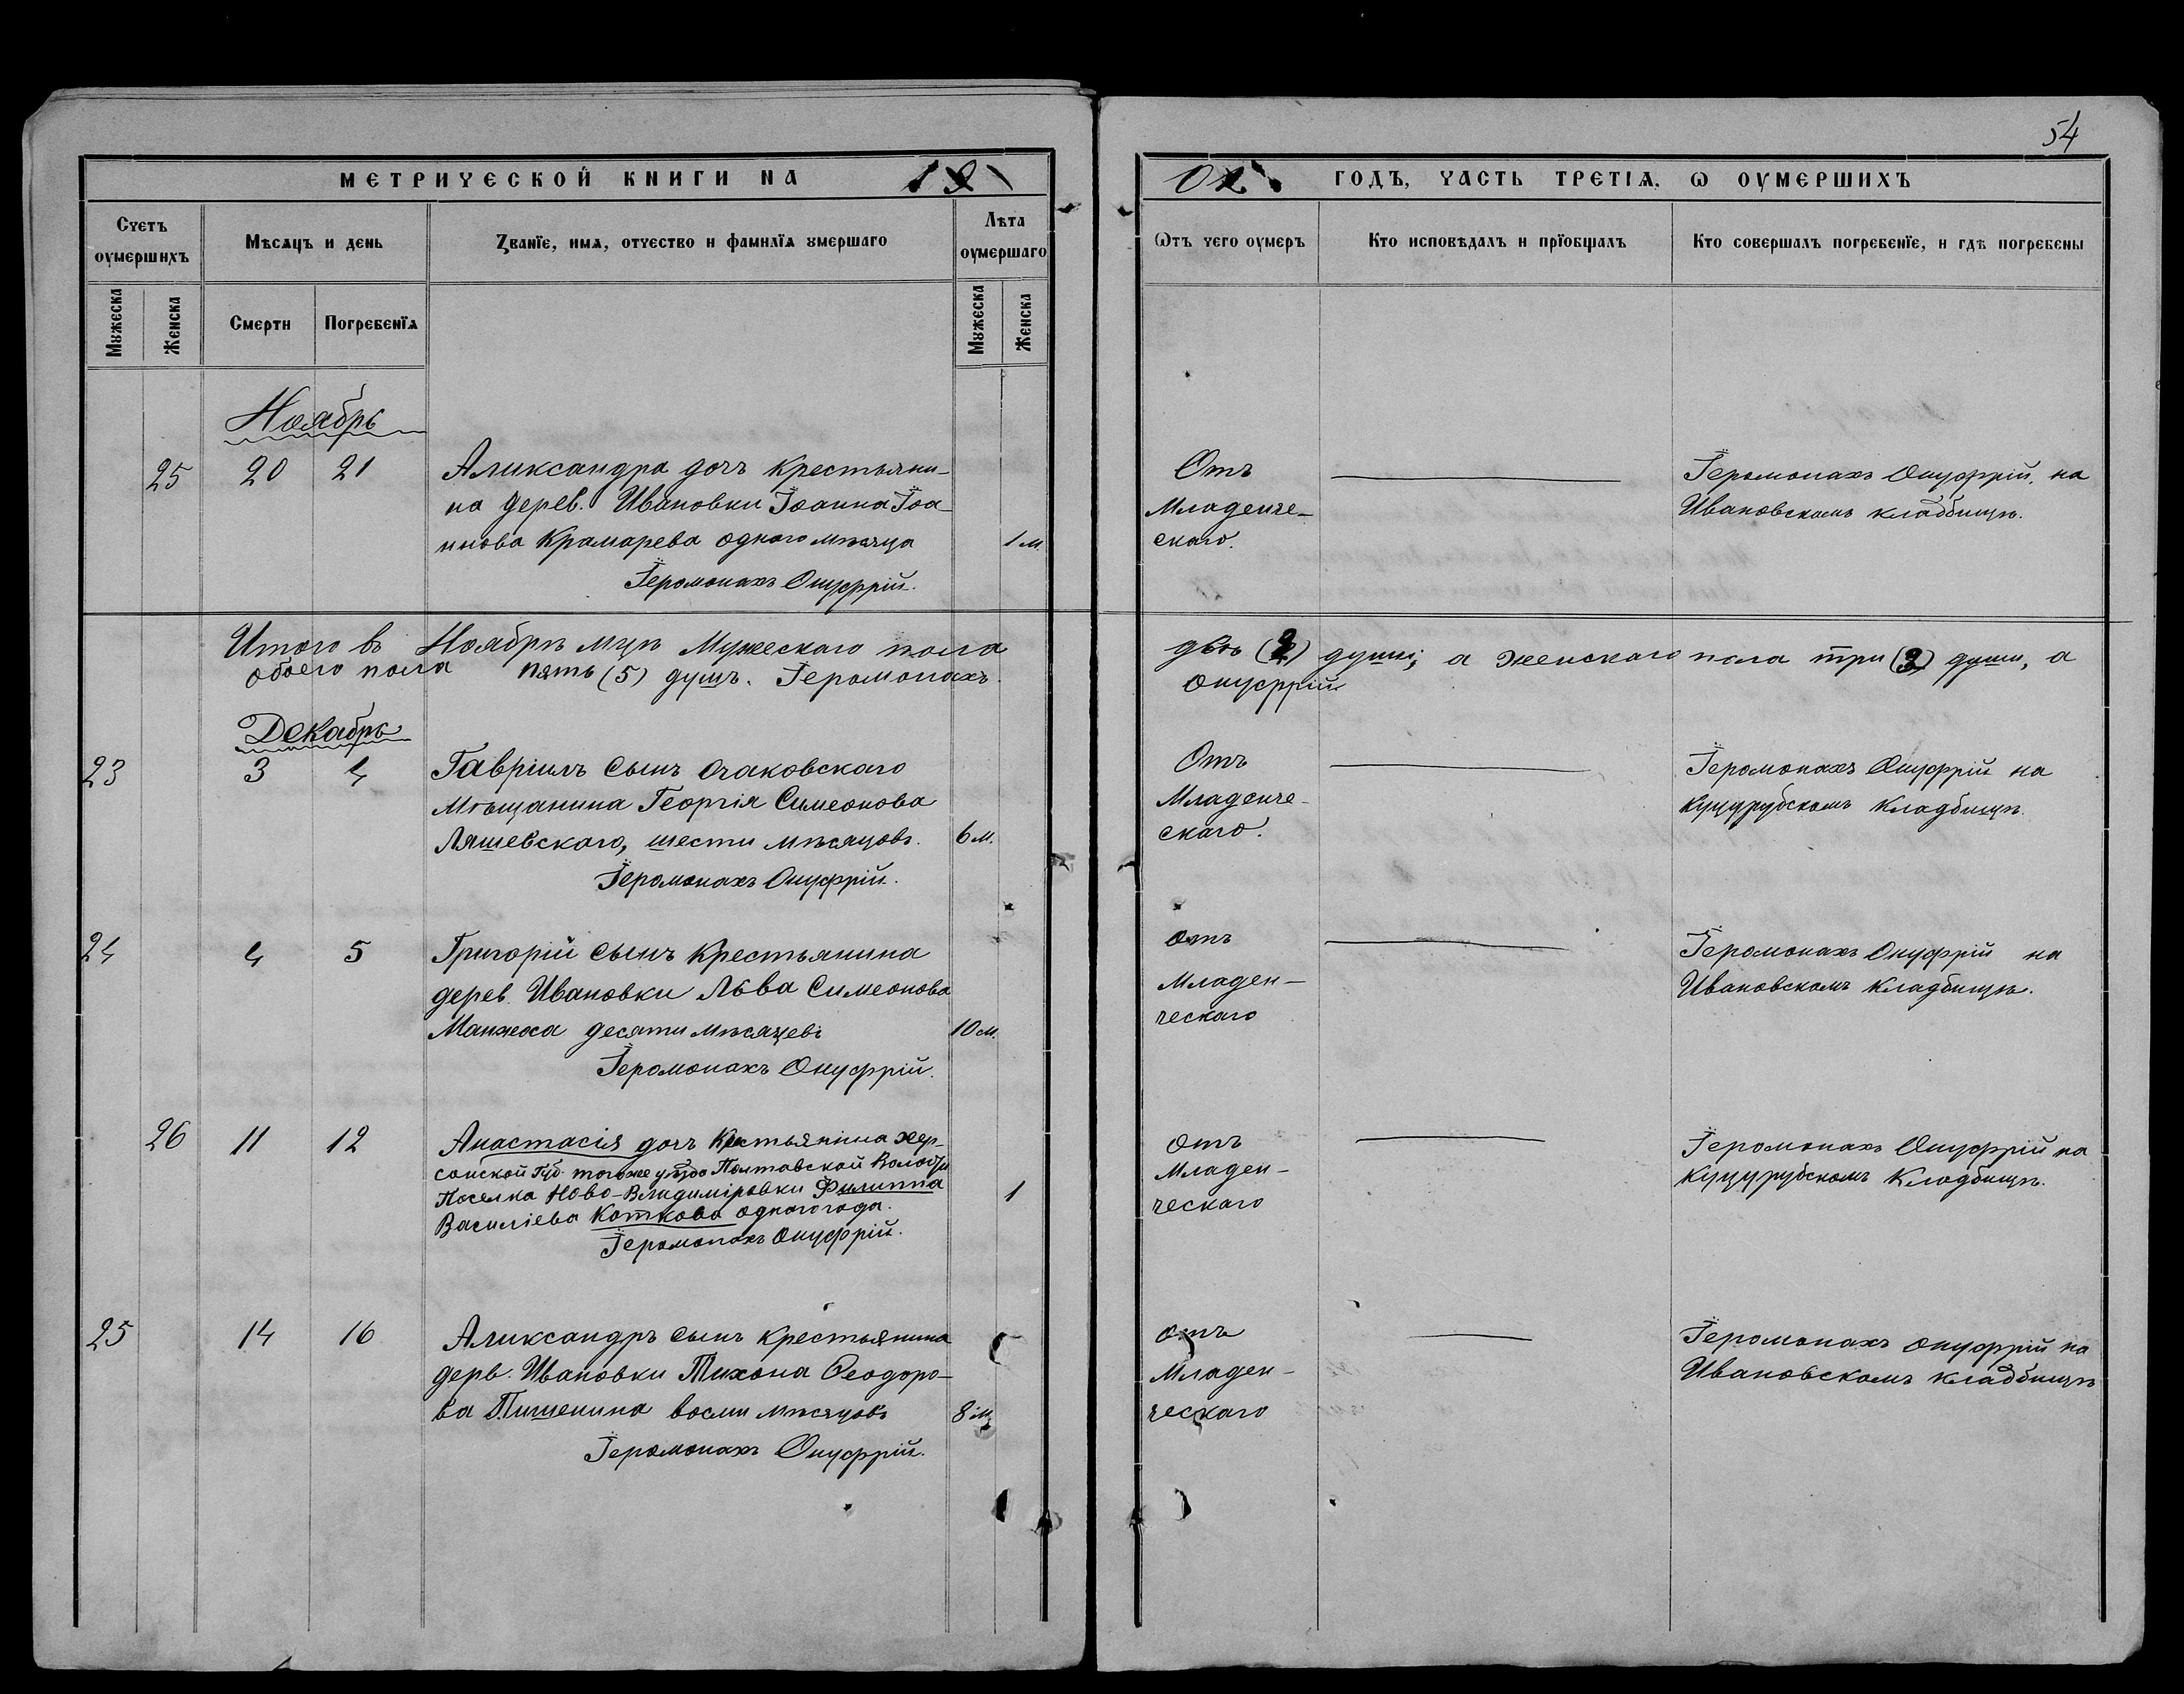 54
МЕТРИЧЕСКОЙ КНИГИ НА 19
02 ГОДЪ, ЧАСТЬ ТРЕТІЯ, Ѡ ОУМЕРШИХЪ
Счетъ оумершихъ
Мѣсяцъ и день
Званїе, имя, отчество и фамилїя умершаго
Лѣта оумершаго
Ѿтъ чего оумеръ
Кто исповѣдалъ и прїобщалъ
Кто совершалъ погребенїе, и гдѣ погребены
Мужеска
Женска
Смерти
Погребенїя
Мужеска
Женска
Ноябрь
25 20 21 Александра дочь крестьяни-
на дерев. Ивановки Іоанна Іоа-
ннова Крамарева одного мѣсяца 1 м.
Іеромонахъ Онуфрій.
Отъ
Младенче-
скаго.
Іеромонахъ Онуфрій, на
Ивановскомъ кладбищѣ.
Итого въ Ноябрѣ мцѣ Мужескаго пола двѣ (2) души, а женскаго пола три (3) души, а
обоего пола пять (5) душъ. Іеромонахъ Онуфрій
Декабрь
23 3 4 Гавріилъ сынъ очаковскаго
мѣщанина Георгія Симеонова
Ляшевскаго, шести мѣсяцовъ. 6 м.
Іеромонахъ Онуфрій.
Отъ
Младенче-
скаго.
Іеромонахъ Онуфрій на
Куцурубскомъ кладбищѣ.
24 4 5 Григорій сынъ крестьянина
дерев. Ивановки Льва Симеонова
Манжоса десяти мѣсяцевъ 10 м.
Іеромонахъ Онуфрій.
отъ
Младен-
ческаго
Іеромонахъ Онуфрій на
Ивановскомъ кладбищѣ.
26 11 12 Анастасія дочь крестьянина хер-
сонской Губ. тогоже уѣзда Полтавской Волости
Поселка Ново-Владиміровки Филиппа
Василіева Коткова одного года. 1
Іеромонахъ Онуфрій.
отъ
Младен-
ческаго
Іеромонахъ Онуфрій на
Куцурубскомъ Кладбищѣ.
25 14 16 Александръ сынъ крестьянина
дерв. Ивановки Тихона Ѳеодоро-
ва Пишенина восми мѣсяцовъ 8 м.
Іеромонахъ Онуфрій.
отъ
Младен-
ческаго
Іеромонахъ Онуфрій на
Ивановскомъ кладбищѣ